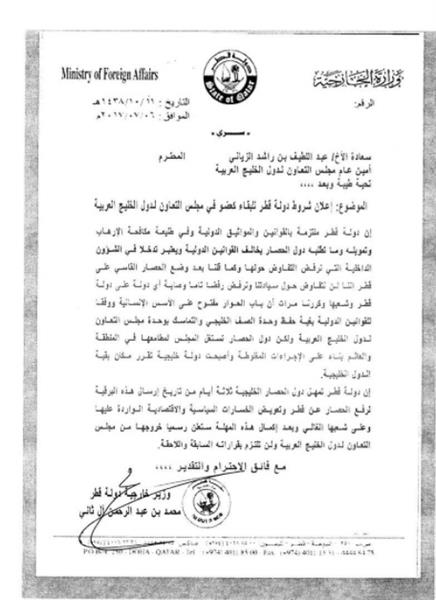 Ministry of Foreign Affairs
وزارة الخارجية
دولة قطر
State of Qatar
الرقم:
التاريخ : ١٤٣٨/١٠/١١هـ
الموافق: ٢٠١٧/٠٧/٠٦م
- سري -
سعادة الأخ/ عبد اللطيف بن راشد الزياني المحترم
أمين عام مجلس التعاون لدول الخليج العربية
تحية طيبة وبعد ،،،،
الموضوع: إعلان شروط دولة قطر للبقاء كعضو في مجلس التعاون لدول الخليج العربية
إن دولة قطر ملتزمة بالقوانين والمواثيق الدولية وفي طليعة مكافحة الإرهاب
وتمويله وما تطلبه دول الحصار يخالف القوانين الدولية ويعتبر تدخلا في الشؤون
الداخلية التي نرفض التفاوض حولها وكما قلنا بعد وضع الحصار القاسي على
قطر اننا لن نتفاوض حول سيادتنا ونرفض رفضا تاما وصاية أي دولة على دولة
قطر وشعبها وكررنا مرات أن باب الحوار مفتوح على الأسس الإنسانية ووفقا
للقوانين الدولية بغية حفظ وحدة الصف الخليجي والتماسك بوحدة مجلس التعاون
لدول الخليج العربية ولكن دول الحصار تستغل المجلس لمطامعها في المنطقة
والعالم بناء على الإجراءات المغلوطة وأصبحت دولة خليجية تقرر مكان بقية
الدول الخليجية.
إن دولة قطر تمهل دول الحصار الخليجية ثلاثة أيام من تاريخ إرسال هذه البرقية
لرفع الحصار عن قطر وتعويض الخسارات السياسية والاقتصادية الواردة عليها
وعلى شعبها الغالي وبعد إكمال هذه المهلة ستعلن رسميا خروجها من مجلس
التعاون لدول الخليج العربية ولن تلتزم بقراراته السابقة واللاحقة.
مع فائق الاحترام والتقدير ،،،،
وزير خارجية دولة قطر
محمد بن عبد الرحمن آل ثاني
P.O.BOX: 250 - DOHA - QATAR - Tel: